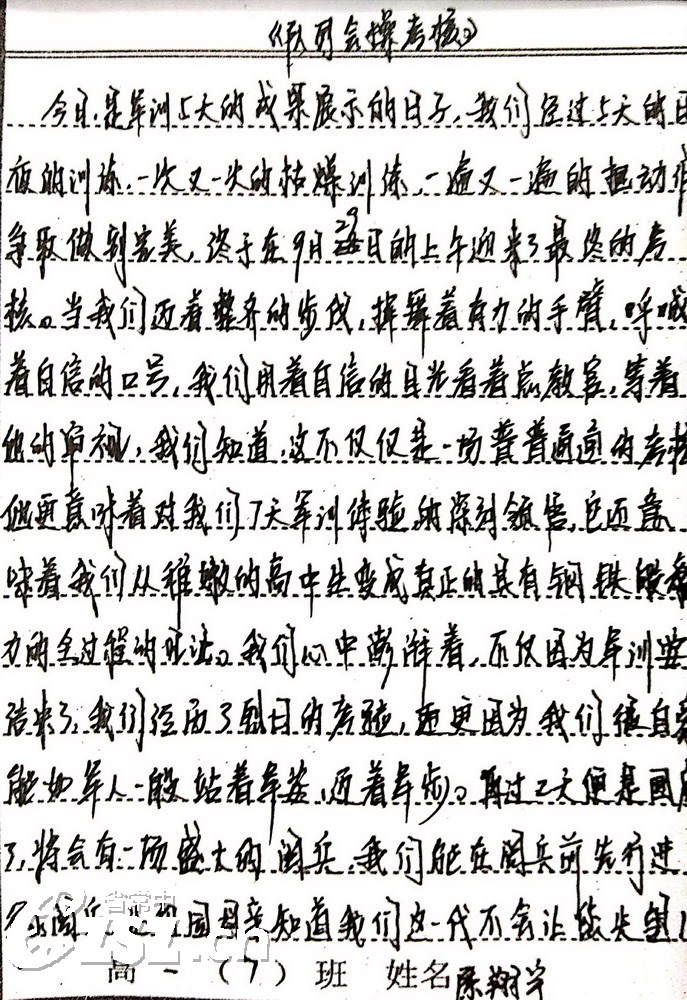 《队列会操考核》
今日,是军训5天的成果展示的日子,我们经过5天的日
夜的训练,一次又一次的枯燥训练,一遍又一遍的抠动作
争取做到完美,终于在9月29日的上午迎来了最终的考
核。当我们迈着整齐的步伐,挥舞着有力的手臂,呼喊
着自信的口号,我们用着自信的目光看着总教官,等着
他的审视,我们知道,这不仅仅是一场普普通通的考核
他更意味着对我们7天军训体验的深刻领悟,它还意
味着我们从稚嫩的高中生变成真正的具有钢铁般
力的全过程的见证。我们心中澎湃着,不仅因为军训要
结束了,我们经历了烈日的考验,还更因为我们很自豪
能如军人一般站着军姿,迈着军步。再过2天便是国庆
了,将会有一场盛大的阅兵,我们能在阅兵前先行进
阅兵 祖国母亲知道我们这一代不会让您失望
高一(7)班 姓名 陈翔宇